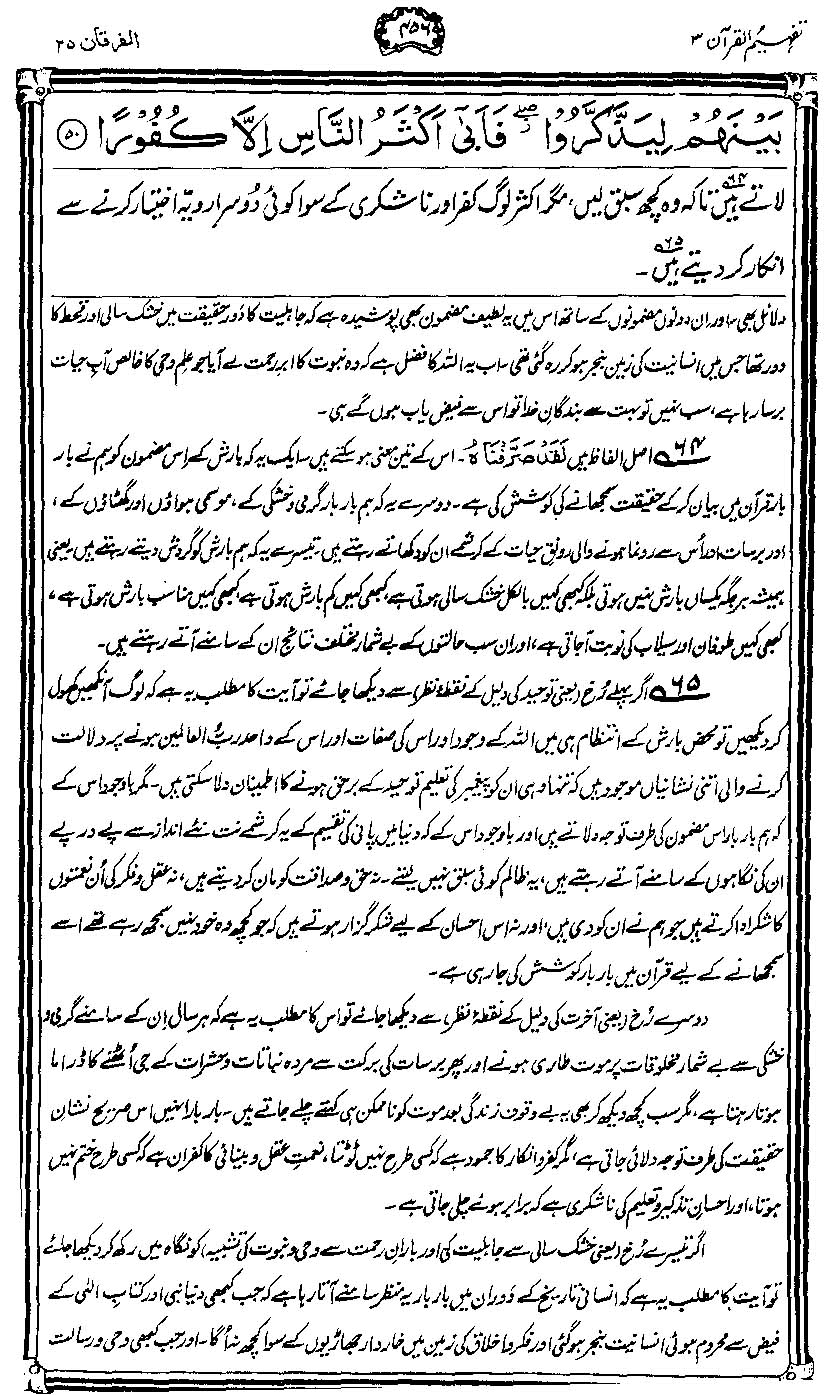 تفہیم القرآن ۳
۴۵۶
الفرقان ۲۵
بَيْنَهُمْ لِيَذَّكَّرُوْا ۖ فَاَبٰٓى اَكْثَرُ النَّاسِ اِلَّا كُفُوْرًا ۝۵۰
لاتے ہیں۶۴ تاکہ وہ کچھ سبق لیں، مگر اکثر لوگ کفر اور ناشکری کے سوا کوئی دُوسرا رویّہ اختیار کرنے سے
انکار کر دیتے ہیں۶۵۔
دلائل بھی۔ اور ان دونوں مضمونوں کے ساتھ اس میں یہ لطیف مضمون بھی پوشیدہ ہے کہ جاہلیت کا دَور حقیقت میں خشک سالی اور قحط کا
دور تھا جس میں انسانیت کی زمین بنجر ہو کر رہ گئی تھی۔ اب یہ اللہ کا فضل ہے کہ وہ نبوت کا ابرِ رحمت لے آیا جو علم وحی کا خالص آبِ حیات
برسا رہا ہے، سب نہیں تو بہت سے بندگانِ خدا تو اس سے فیض یاب ہوں گے ہی۔
۶۴ اصل الفاظ ہیں لَقَدْ صَرَّفْنَاہُ۔ اس کے تین معنی ہو سکتے ہیں۔ ایک یہ کہ بارش کے اس مضمون کو ہم نے بار
بار قرآن میں بیان کر کے حقیقت سمجھانے کی کوشش کی ہے۔ دوسرے یہ کہ ہم بار بار گرمی و خشکی کے، موسمی ہواؤں اور گھٹاؤں کے،
اور برسات اور اُس سے رونما ہونے والی رونقِ حیات کے کرشمے ان کو دکھاتے رہتے ہیں۔ تیسرے یہ کہ ہم بارش کو گردش دیتے رہتے ہیں یعنی
ہمیشہ ہر جگہ یکساں بارش نہیں ہوتی بلکہ کبھی کہیں بالکل خشک سالی ہوتی ہے، کبھی کہیں کم بارش ہوتی ہے، کبھی کہیں مناسب بارش ہوتی ہے،
کبھی کہیں طوفان اور سیلاب کی نوبت آجاتی ہے، اور ان سب حالتوں کے بے شمار مختلف نتائج ان کے سامنے آتے رہتے ہیں۔
۶۵ اگر پہلے رُخ (یعنی توحید کی دلیل کے نقطۂ نظر) سے دیکھا جائے تو آیت کا مطلب یہ ہے کہ لوگ آنکھیں کھول
کر دیکھیں تو محض بارش کے انتظام ہی میں اللہ کے وجود اور اس کی صفات اور اس کے واحد ربُّ العالمین ہونے پر دلالت
کرنے والی اتنی نشانیاں موجود ہیں کہ تنہا وہی ان کو پیغمبر کی تعلیمِ توحید کے برحق ہونے کا اطمینان دلا سکتی ہیں۔ مگر باوجود اس کے
کہ ہم بار بار اس مضمون کی طرف توجہ دلاتے ہیں اور باوجود اس کے کہ دنیا میں پانی کی تقسیم کے یہ کرشمے نت نئے انداز سے پے درپے
ان کی نگاہوں کے سامنے آتے رہتے ہیں، یہ ظالم کوئی سبق نہیں لیتے۔ نہ حق و صداقت کو مان کر دیتے ہیں، نہ عقل و فکر کی اُن نعمتوں
کا شکر ادا کرتے ہیں جو ہم نے ان کو دی ہیں، اور نہ اس احسان کے لیے شکر گزار ہوتے ہیں کہ جو کچھ وہ خود نہیں سمجھ رہے تھے اسے
سمجھانے کے لیے قرآن میں بار بار کوشش کی جا رہی ہے۔
دوسرے رُخ (یعنی آخرت کی دلیل کے نقطۂ نظر) سے دیکھا جائے تو اس کا مطلب یہ ہے کہ ہر سال اِن کے سامنے گرمی و
خشکی سے بے شمار مخلوقات پر موت طاری ہونے اور پھر برسات کی برکت سے مردہ نباتات و حشرات کے جی اُٹھنے کا ڈراما
ہوتا رہتا ہے، مگر سب کچھ دیکھ کر بھی یہ بے وقوف زندگی بعد موت کو ناممکن ہی کہتے چلے جاتے ہیں۔ بار بار انہیں اس صریح نشانِ
حقیقت کی طرف توجہ دلائی جاتی ہے، مگر کفر و انکار کا جمود ہے کہ کسی طرح نہیں ٹوٹتا، نعمتِ عقل و بینائی کا کفران ہے کہ کسی طرح ختم نہیں
ہوتا، اور احسانِ تذکیر و تعلیم کی ناشکری ہے کہ برابر ہوئے چلی جاتی ہے۔
اگر تیسرے رُخ (یعنی خشک سالی سے جاہلیت کی اور بارانِ رحمت سے وحی و نبوت کی تشبیہ) کو نگاہ میں رکھ کر دیکھا جائے
تو آیت کا مطلب یہ ہے کہ انسانی تاریخ کے دَوران میں بار بار یہ منظر سامنے آتا رہا ہے کہ جب کبھی دنیا نبی اور کتابِ الٰہی کے
فیض سے محروم ہوئی انسانیت بنجر ہو گئی اور فکر و اخلاق کی زمین میں خاردار جھاڑیوں کے سوا کچھ نہ اُگا۔ اور جب کبھی وحی و رسالت